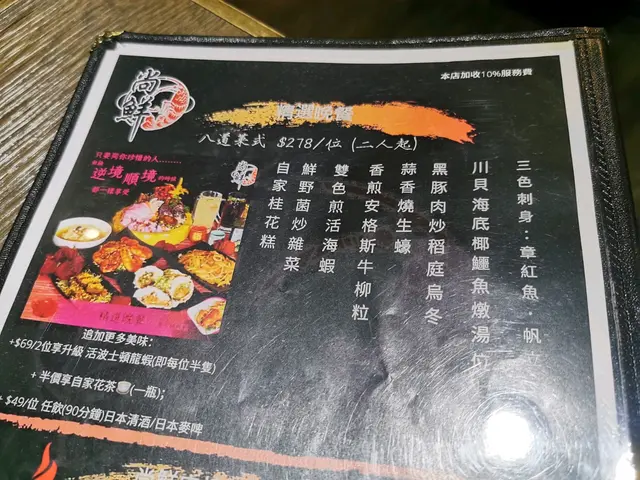 本店加收10%服務費
尚鮮
精選晚餐
八道菜式 $278/位 (二人起)
三色刺身：章紅魚．帆
川貝海底椰鱷魚燉湯位
黑豚肉炒稻庭烏冬
蒜香燒生蠔
香煎安格斯牛柳粒
雙色煎活海蝦
鮮野菌炒雜菜
自家桂花糕
只要與你珍惜的人.......
逆境順境
都一樣享受
精選晚餐
追加更多美味:
+$69/2位享升級 活波士頓龍蝦(即每位半隻)
+ 半價享自家花茶(一瓶);
+ $49/位 任飲(90分鐘)日本清酒/日本麥啤